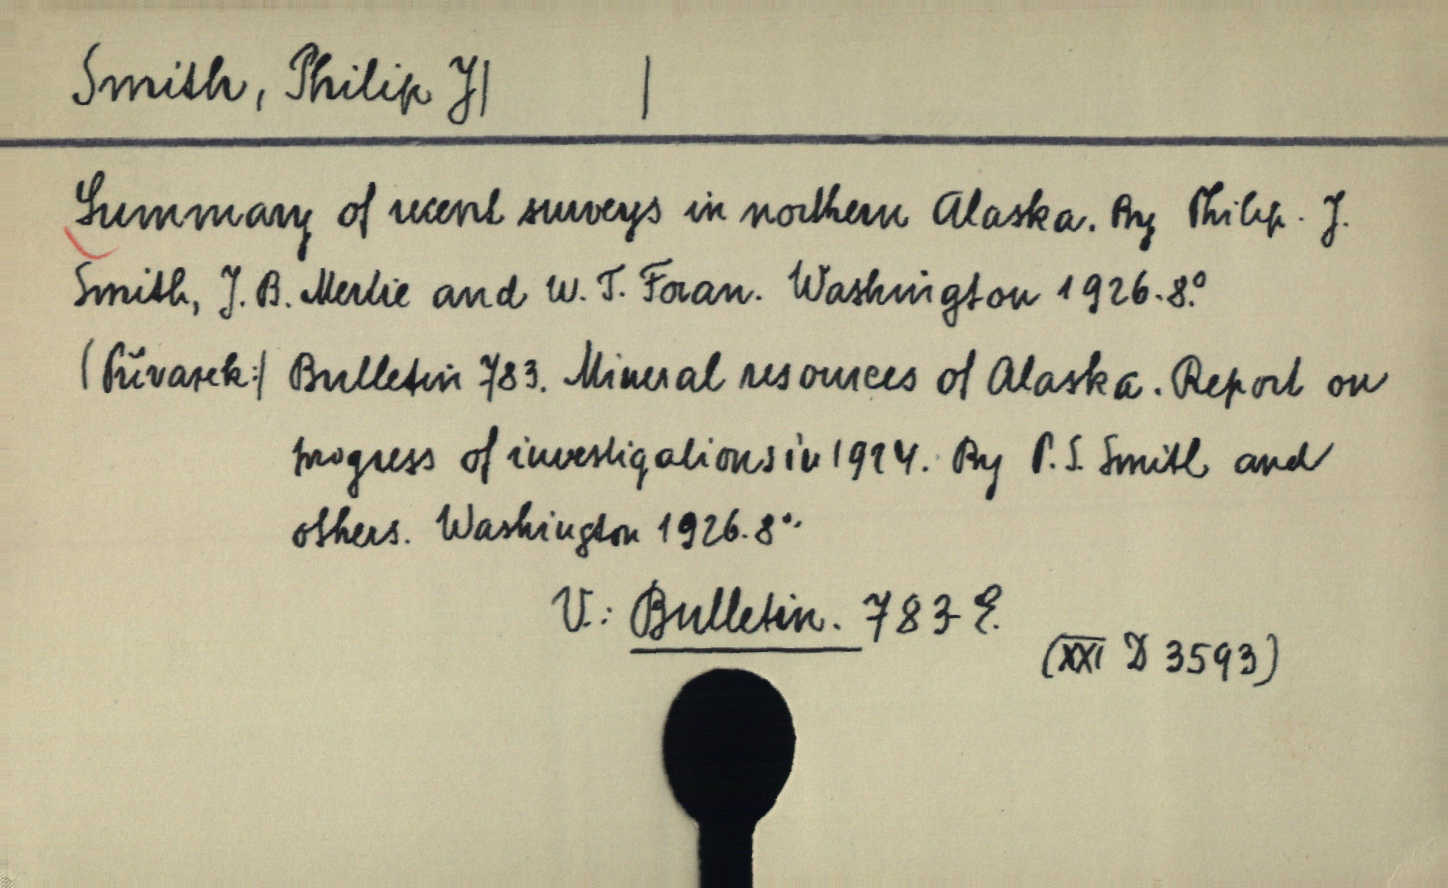 Smith, Philip J| |
Summary of recent surveys in northern Alaska. By Philip. J.
Smith, J. B. Mertie and W. T. Foran. Washington 1926. 8.°
(Přívazek:) Bulletin 783. Mineral resources of Alaska. Report on
progress of investigations in 1924. By P. S. Smith and
others. Washington 1926. 8°.
V.: Bulletin. 783 E.
(XXI D 3593)